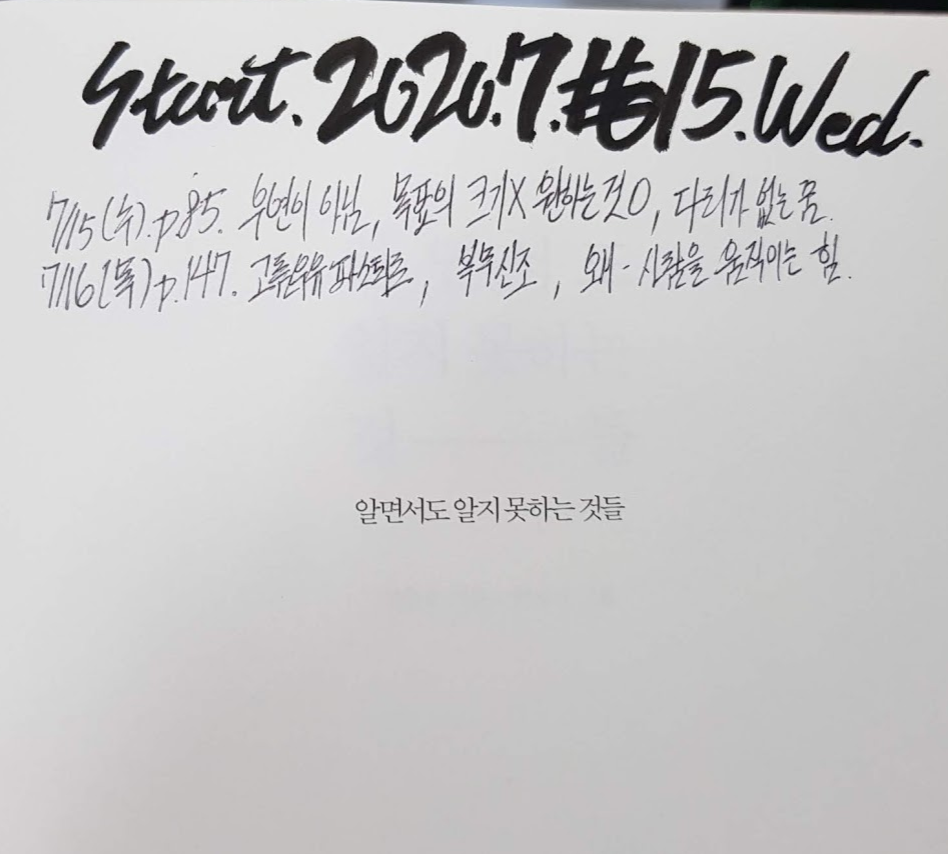 Start. 2020. 7. 15. Wed.
7/15(수). p.85. 우연이 아님, 목표의 크기X 원하는것O, 다리가 없는 꿈.
7/16(목) p.147. , 부부신조, 왜 - 사람을 움직이는 힘.
알면서도 알지 못하는 것들